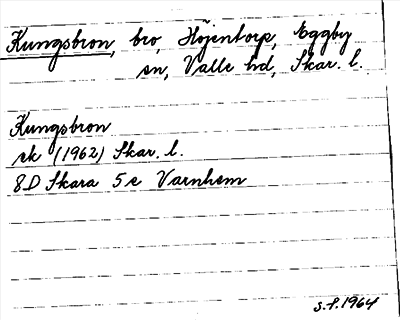 Kungsbron, bro, Höjentorp, Eggby
sn, Valle hd, Skar. l.
Kungsbron
ek (1962) Skar. l.
8D Skara 5e Varnhem
S.P. 1964